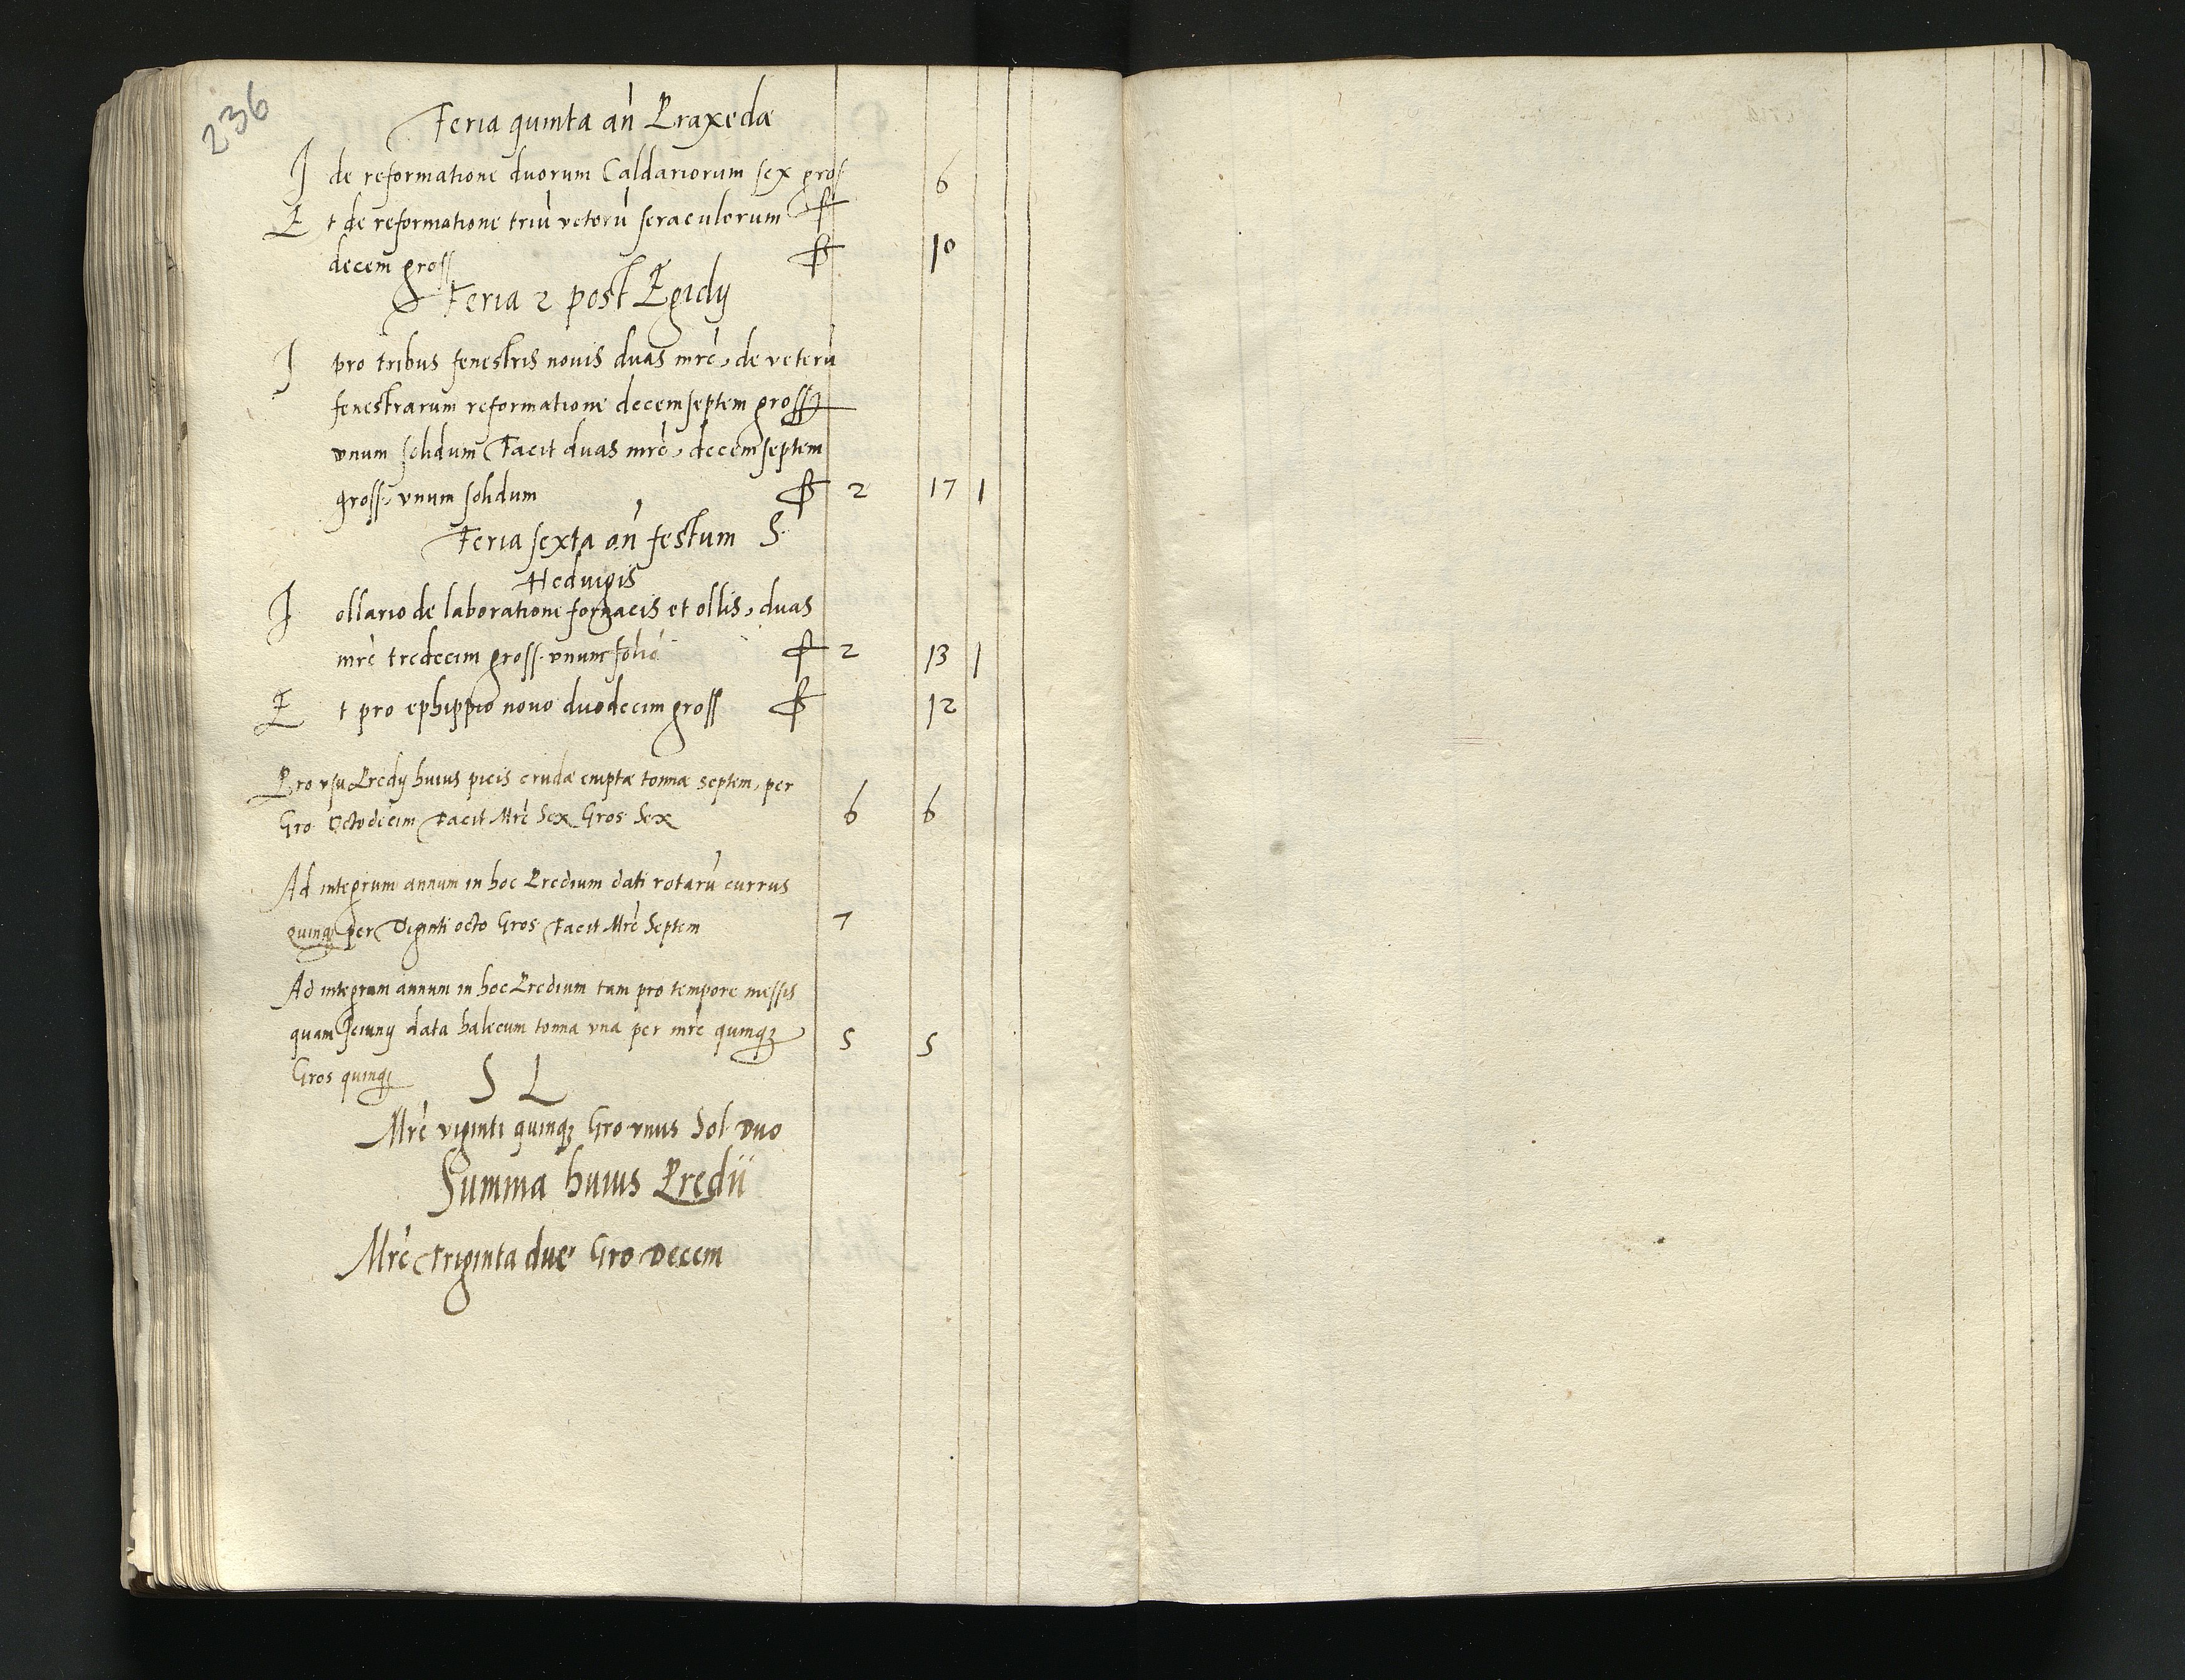 236
Feria quinta añ Praxedæ
I de reformatione duorum Caldariorum sex gros f 6
Et de reformatione triũ vetorũ seraculorum
decem gross f 10
Feria 2 post Egidy
I pro tribus fenestris nouis duas mrc, de veterũ
fenestrarum reformatione decemseptem gross
vnum solidum Facit duas mrc, decemseptem
gross, vnum solidum f 2 17 1
Feria sexta añ festum S.
Heduigis
I ollario de laboratione fornacis et ollis, duas
mrc tredecim gross. vnum solid f 2 13 1
Et pro ephippio nouo duodecim gross f 12
Pro vsu Predy huius picis crudæ emptæ tonnæ septem, per
Gro Octodecim Facit Mrc Sex Gros Sex 6 6
Ad integrum annum in hoc Predium dati rotarũ currus
quinq; per Viginti octo Gros Facit Mrc Septem 7
Ad integrum annum in hoc Predium tam pro tempore messis
quam Jeiuny data halecum tonna vna per mrc quinq; 5 5
Gros quinq;
S L
Mrc viginti quinq; Gro vnus Sol Duo
Summa huius Predii
Mrc Triginta due Gro Decem